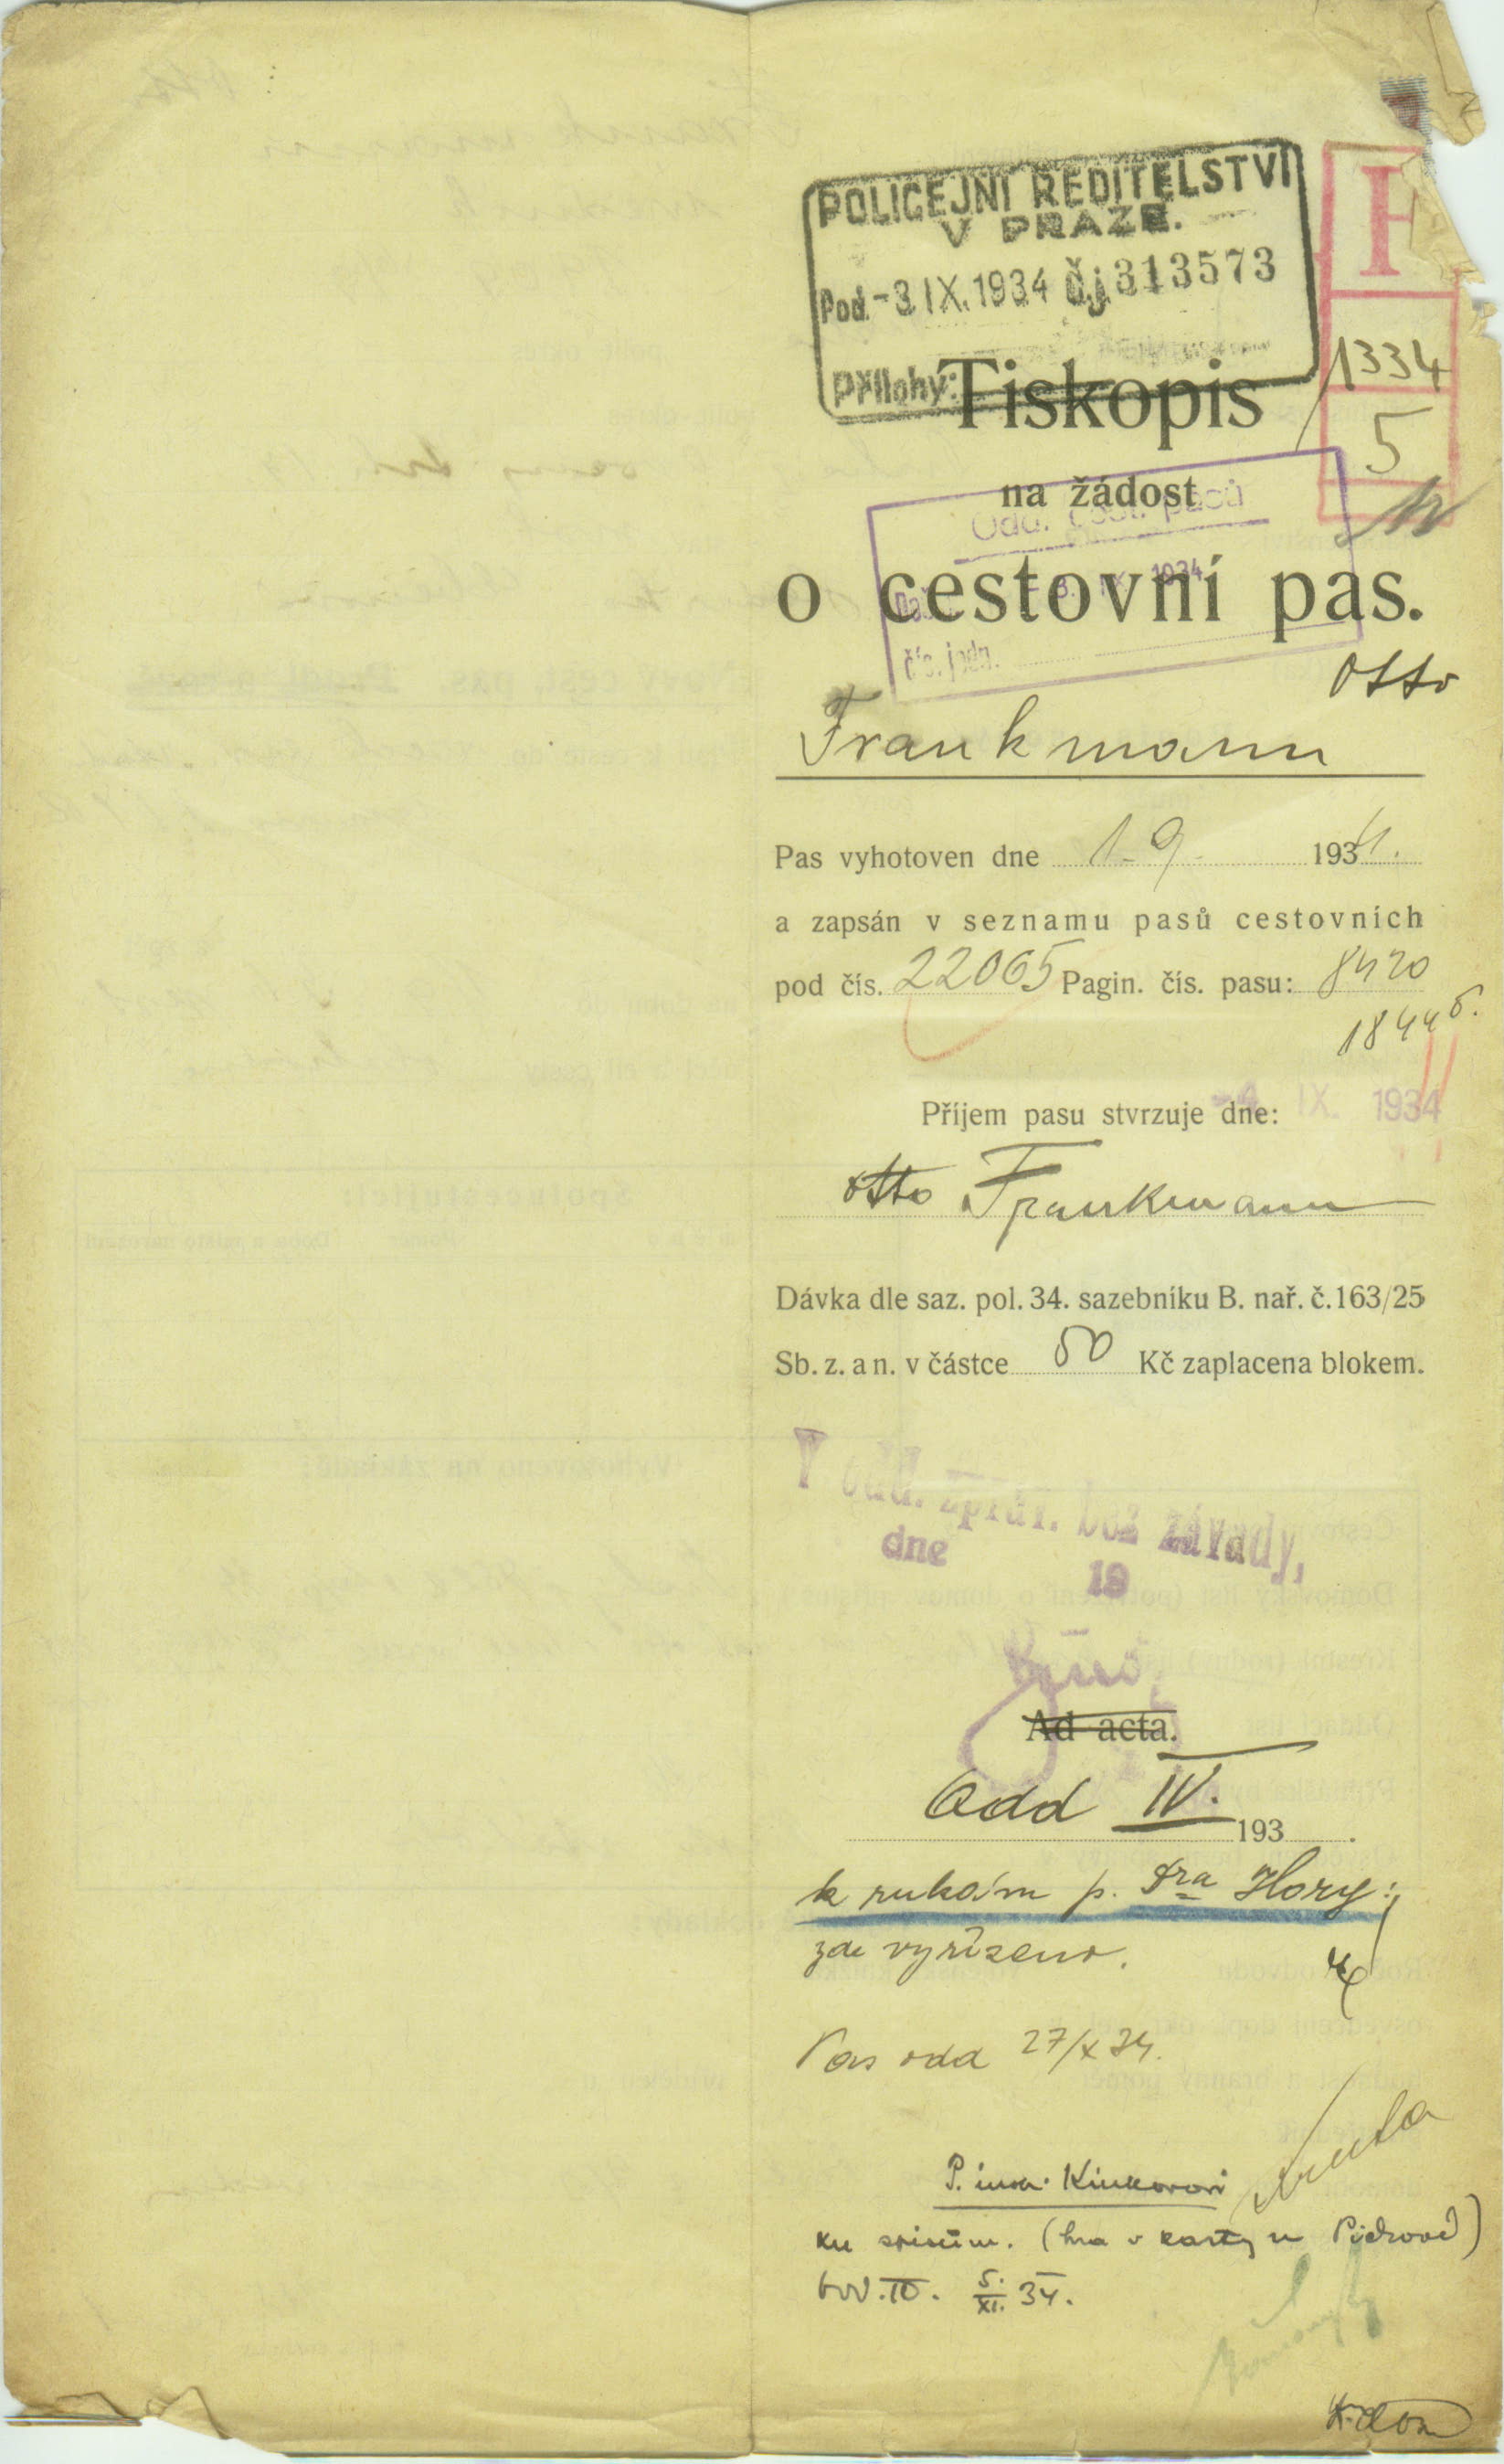 POLICEJNÍ ŘEDITELSTVÍ
V PRAZE.
Pod. -3. IX. 1934 Č.j. 313573
Přílohy:
F
1334
5
Tiskopis
na žádost
Odd. cest. pasů
o cestovní pas.
3. IX. 1934
Doš.
čís. jedn.
Otto
Frankmann
Pas vyhotoven dne 1. 9. 1934.
a zapsán v seznamu pasů cestovních
pod čís. 22065 Pagin. čís. pasu: 8420
Příjem pasu stvrzuje dne: -4. IX. 1934
Otto Frankmann
Dávka dle saz. pol. 34. sazebníku B. nař. č. 163/25
Sb. z. a n. v částce 50 Kč zaplacena blokem.
V odd. zpráv. bez závady,
dne 19
Ad acta.
Odd IV.
193 .
k rukám p. Dra Hory:
zde vyřízeno.
Pas odd 27/X 34.
ku spisům. (hra v karty u
odd. IV. 5./XI. 34.